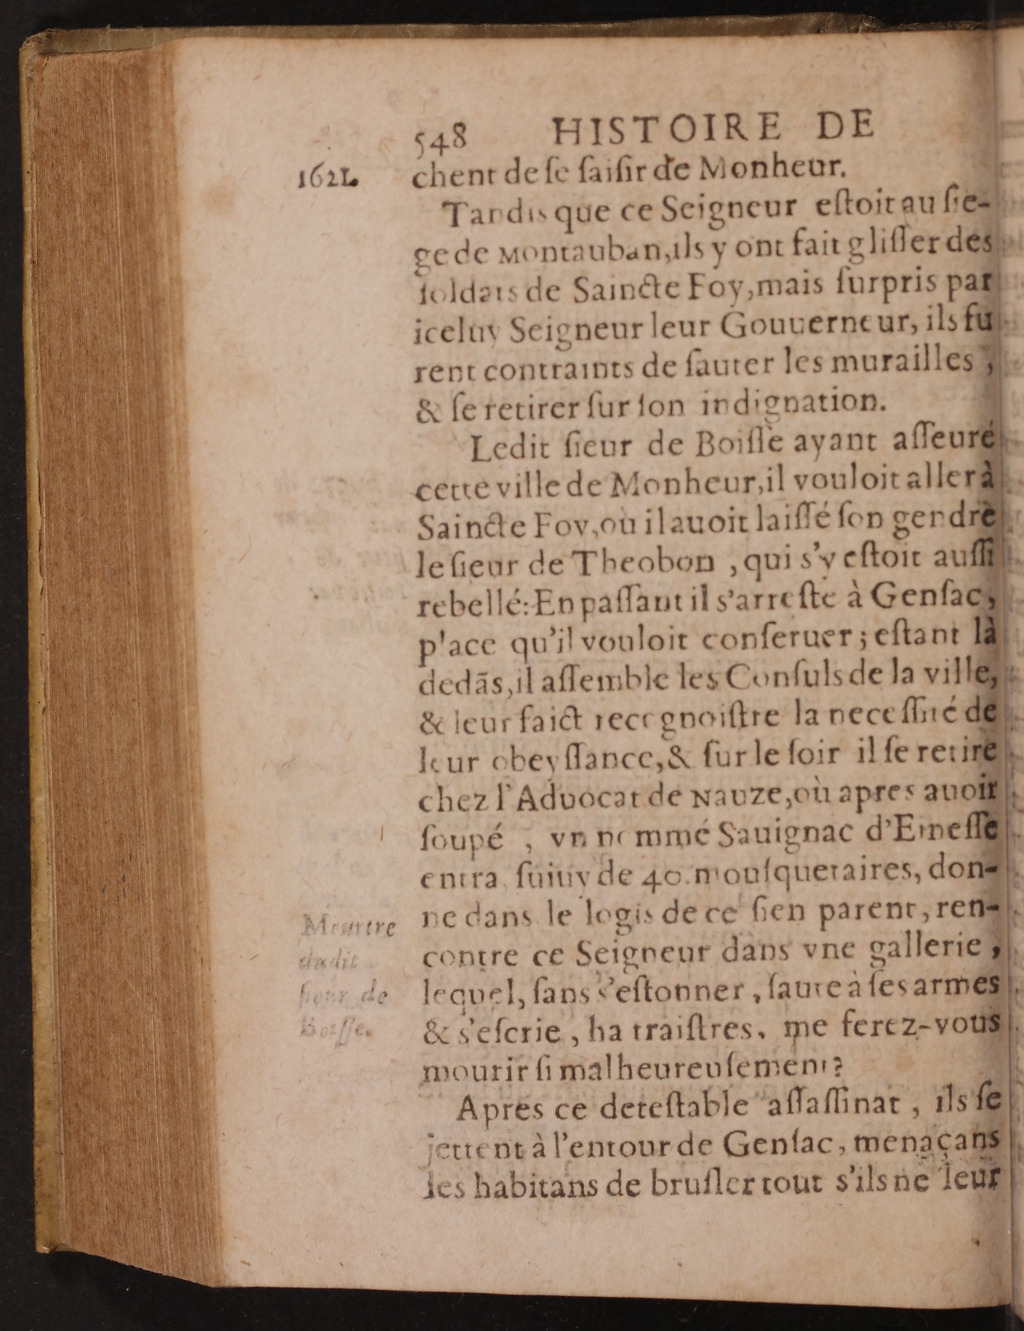 548 HISTOIRE DE
1621. chent de ſe ſaiſir de Monheur.
Tandis que ce Seigneur eſtoit au ſie-
ge de Montauban, ils y ont fait gliſſer des
ſoldats de Saincte Foy, mais ſurpris par
iceluy Seigneur leur Gouuerneur, ils fu
rent contraints de ſauter les murailles,
& ſe retirer ſur ſon indignation.
Ledit ſieur de Boiſſe ayant aſſeuré
cette ville de Monheur, il vouloit aller à
Saincte Foy, où il auoit laiſſé ſon gendre
le ſieur de Theobon, qui s'y eſtoit auſſi
rebellé: En paſſant il s'arreſte à Genſac,
place qu'il vouloit conſeruer; eſtant là
dedãs, il aſſemble les Conſuls de la ville,
& leur faict recognoiſtre la neceſſité de
leur obeyſſance, & ſur le ſoir il ſe retire
chez l'Advocat de Nauze, où apres auoir
ſoupé, vn nommé Sauignac d'Eineſſe
entra, ſuiuy de 40. mouſquetaires, don-
ne dans le logis de ce ſien parent, ren-
contre ce Seigneur dans vne gallerie,
lequel, ſans s'eſtonner, ſaute à ſes armes
& s'eſcrie, ha traiſtres, me ferez-vous
mourir ſi malheureuſement?
Apres ce deteſtable aſſaſſinat, ils ſe
jettent à l'entour de Genſac, menaçans
les habitans de bruſler tout s'ils ne leur
Meurtre
dudit
ſieur de
Boiſſe.